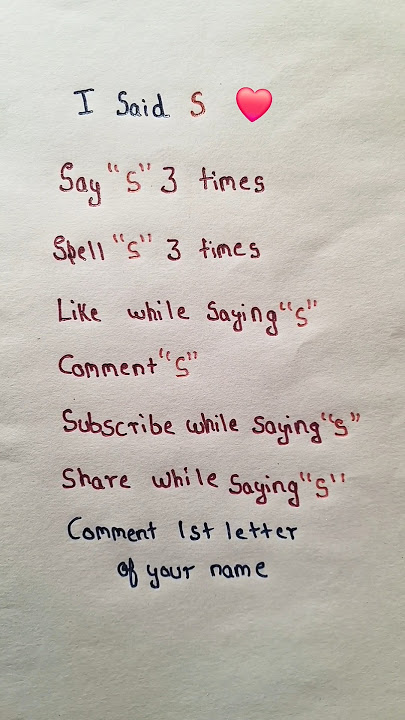 I Said S ❤️
Say "S" 3 times
Spell "S" 3 times
Like while Saying "S"
Comment "S"
Subscribe while Saying "S"
Share while Saying "S"
Comment 1st letter
of your name